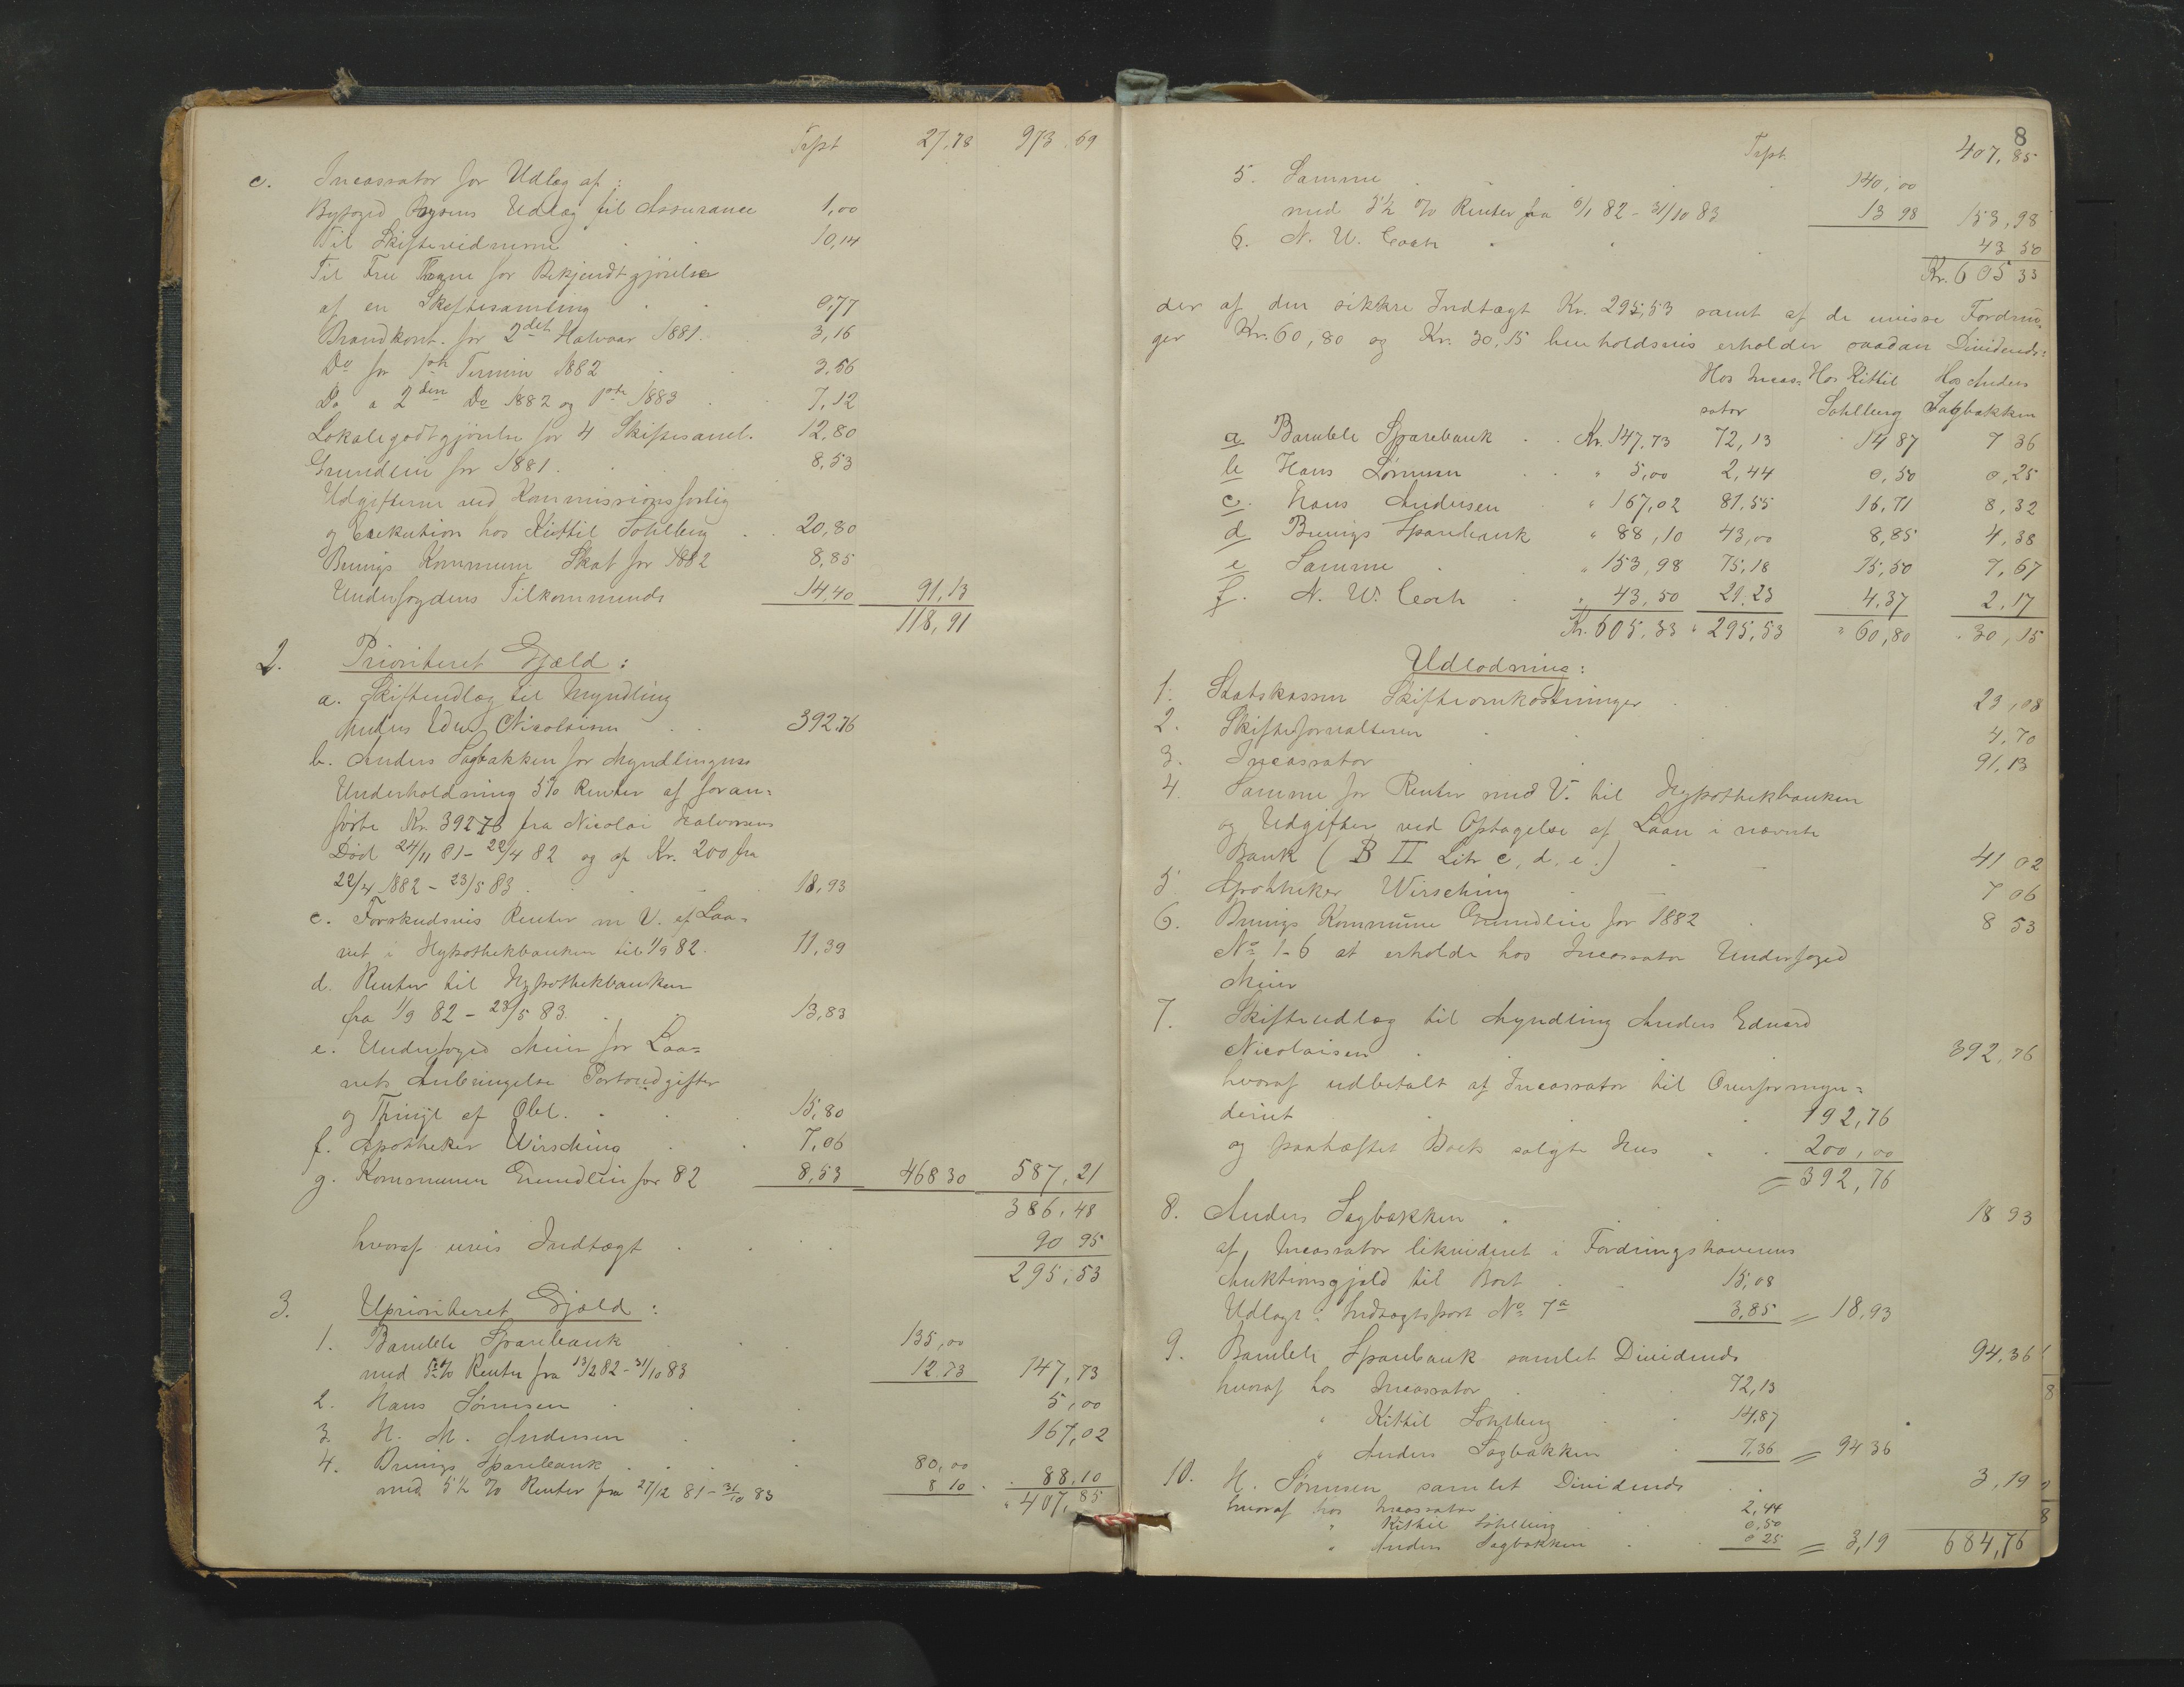 Trpt 27,78 973,69
c. Incassator for Udlæg af:
Byfoged Udlæg til Assurance 1,00
Til Skiftevidnerne 10,14
Til Fru for Bekjendtgjørelse
af en Skiftesamling 0,77
Brandkont. for 2det Halvaar 1881. 3,16
Do for 1ste Termin 1882 3,56
Do " 2den Do 1882 og 1ste 1883 7,12
Lokalegodtgjørelse for 4 Skiftesaml. 12,80
Grundleie for 1881. 8,53
Udgifterne ved Kommissionsforlig
og Exekution hos Kittil Sohlberg 20,80
Brevigs Kommune Skat for 1882 8,85
Underfogdens Tilkommende 14,40 91,13
118,91
2. Prioriteret Gjæld:
a. Skifteudlæg til Myndling
Anders Edu. Nicolaisen 392,76
b. Anders Sagbakken for Myndlingens
Underholdning 5% Renter af foran-
førte Kr. 392,76 fra Nicolai Halvorsens
Død 24/11 81 - 22/4 82 og af Kr. 200 fra
22/4 1882 - 23/5 83. 18,93
c. Forskudsvis Renter m V. af Laa-
net i Hypothekbanken til 1/9 82. 11,39
d. Renter til Hypothekbanken
fra 1/9 82 - 23/5 83. 13,83
e. Underfoged Meier for Laa-
nets Anbringelse Portoudgifter
og Thingl. af Obl. 15,80
f. Apotheker Wirsching 7,06
g. Kommunen Grundleie for 82 8,53 468 30 587,21
386,48
hvoraf uvis Indtægt 90 95
295,53
3. Uprioriteret Gjæld:
1. Bamble Sparebank 135,00
med % Renter fra 13/2 82 - 31/10 83 12.73 147,73
2. Hans Sørensen 5,00
3. H. M. Andersen 167,02
4. Brevigs Sparebank 80,00
med 5½ % Renter fra 27/12 81 - 31/10 83 8 10 88,10
" 407,85
8
Trpt. 407,85
5. Samme 140,00
med 5½ % Renter fra 6/1 82 - 31/10 83 13 98 153,98
6. N. W. Coch 43 50
Kr. 605 33
der af den sikkre Indtægt Kr. 295,53 samt af de uvisse Fordrin-
ger Kr. 60,80 og Kr. 30,15 henholdsvis erholder saadan Dividende:
Hos Incas- Hos Kittil Hos Anders
sator Sohlberg Sagbakken
a Bamble Sparebank Kr. 147,73 72,13 14 87 7 36
b Hans Sørensen " 5,00 2,44 0,50 0,25
c. Hans Andersen " 167,02 81,55 16,71 8,32
d Brevigs Sparebank " 88,10 43,00 8,85 4,38
e Samme " 153,98 75,18 15,50 7,67
f. N. W. Coch " 43,50 21,23 4,37 2,17
Kr. 605,33 " 295,53 " 60,80 " 30,15
Udlodning:
1. Statskassen Skifteomkostninger 23,08
2. Skifteforvalteren 4,70
3. Incassator 91,13
4. Samme for Renter med V. til Hypothekbanken
og Udgifter ved Optagelse af Laan i nævnte
Bank (B II Litr c, d, e.) 41 02
5. Apotheker Wirsching 7 06
6. Brevigs Kommune Grundleie for 1882 8 53
No 1-6 at erholde hos Incassator Underfoged
Meier
7. Skifteudlæg til Myndling Anders Eduard
Nicolaisen 392,76
hvoraf udbetalt af Incassator til Overformyn-
deriet 192,76
og paahæftet Boets solgte Hus 200,00
= 392,76
8. Anders Sagbakken 18 93
af Incassator likvideret i Fordringshaverens
Auktionsgjæld til Boet 15,08
Udlagt i Indtægtspost No 7a 3,85 = 18,93
9. Bamble Sparebank samlet Dividende 94,36
hvoraf hos Incassator 72,13
" Kittil Sohlberg 14,87
" Anders Sagbakken 7,36 = 94 36
10. H. Sørensen samlet Dividende 3,19
hvoraf hos Incassator 2,44
" Kittil Sohlberg 0,50
" Anders Sagbakken 0 25 = 3,19 684,76